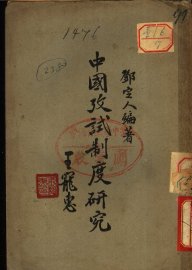 1476
鄧定人編著
中國攷試制度研究
王寵惠